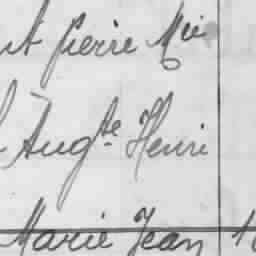 pierre Mie
Augte Henri
Marie Jean 1